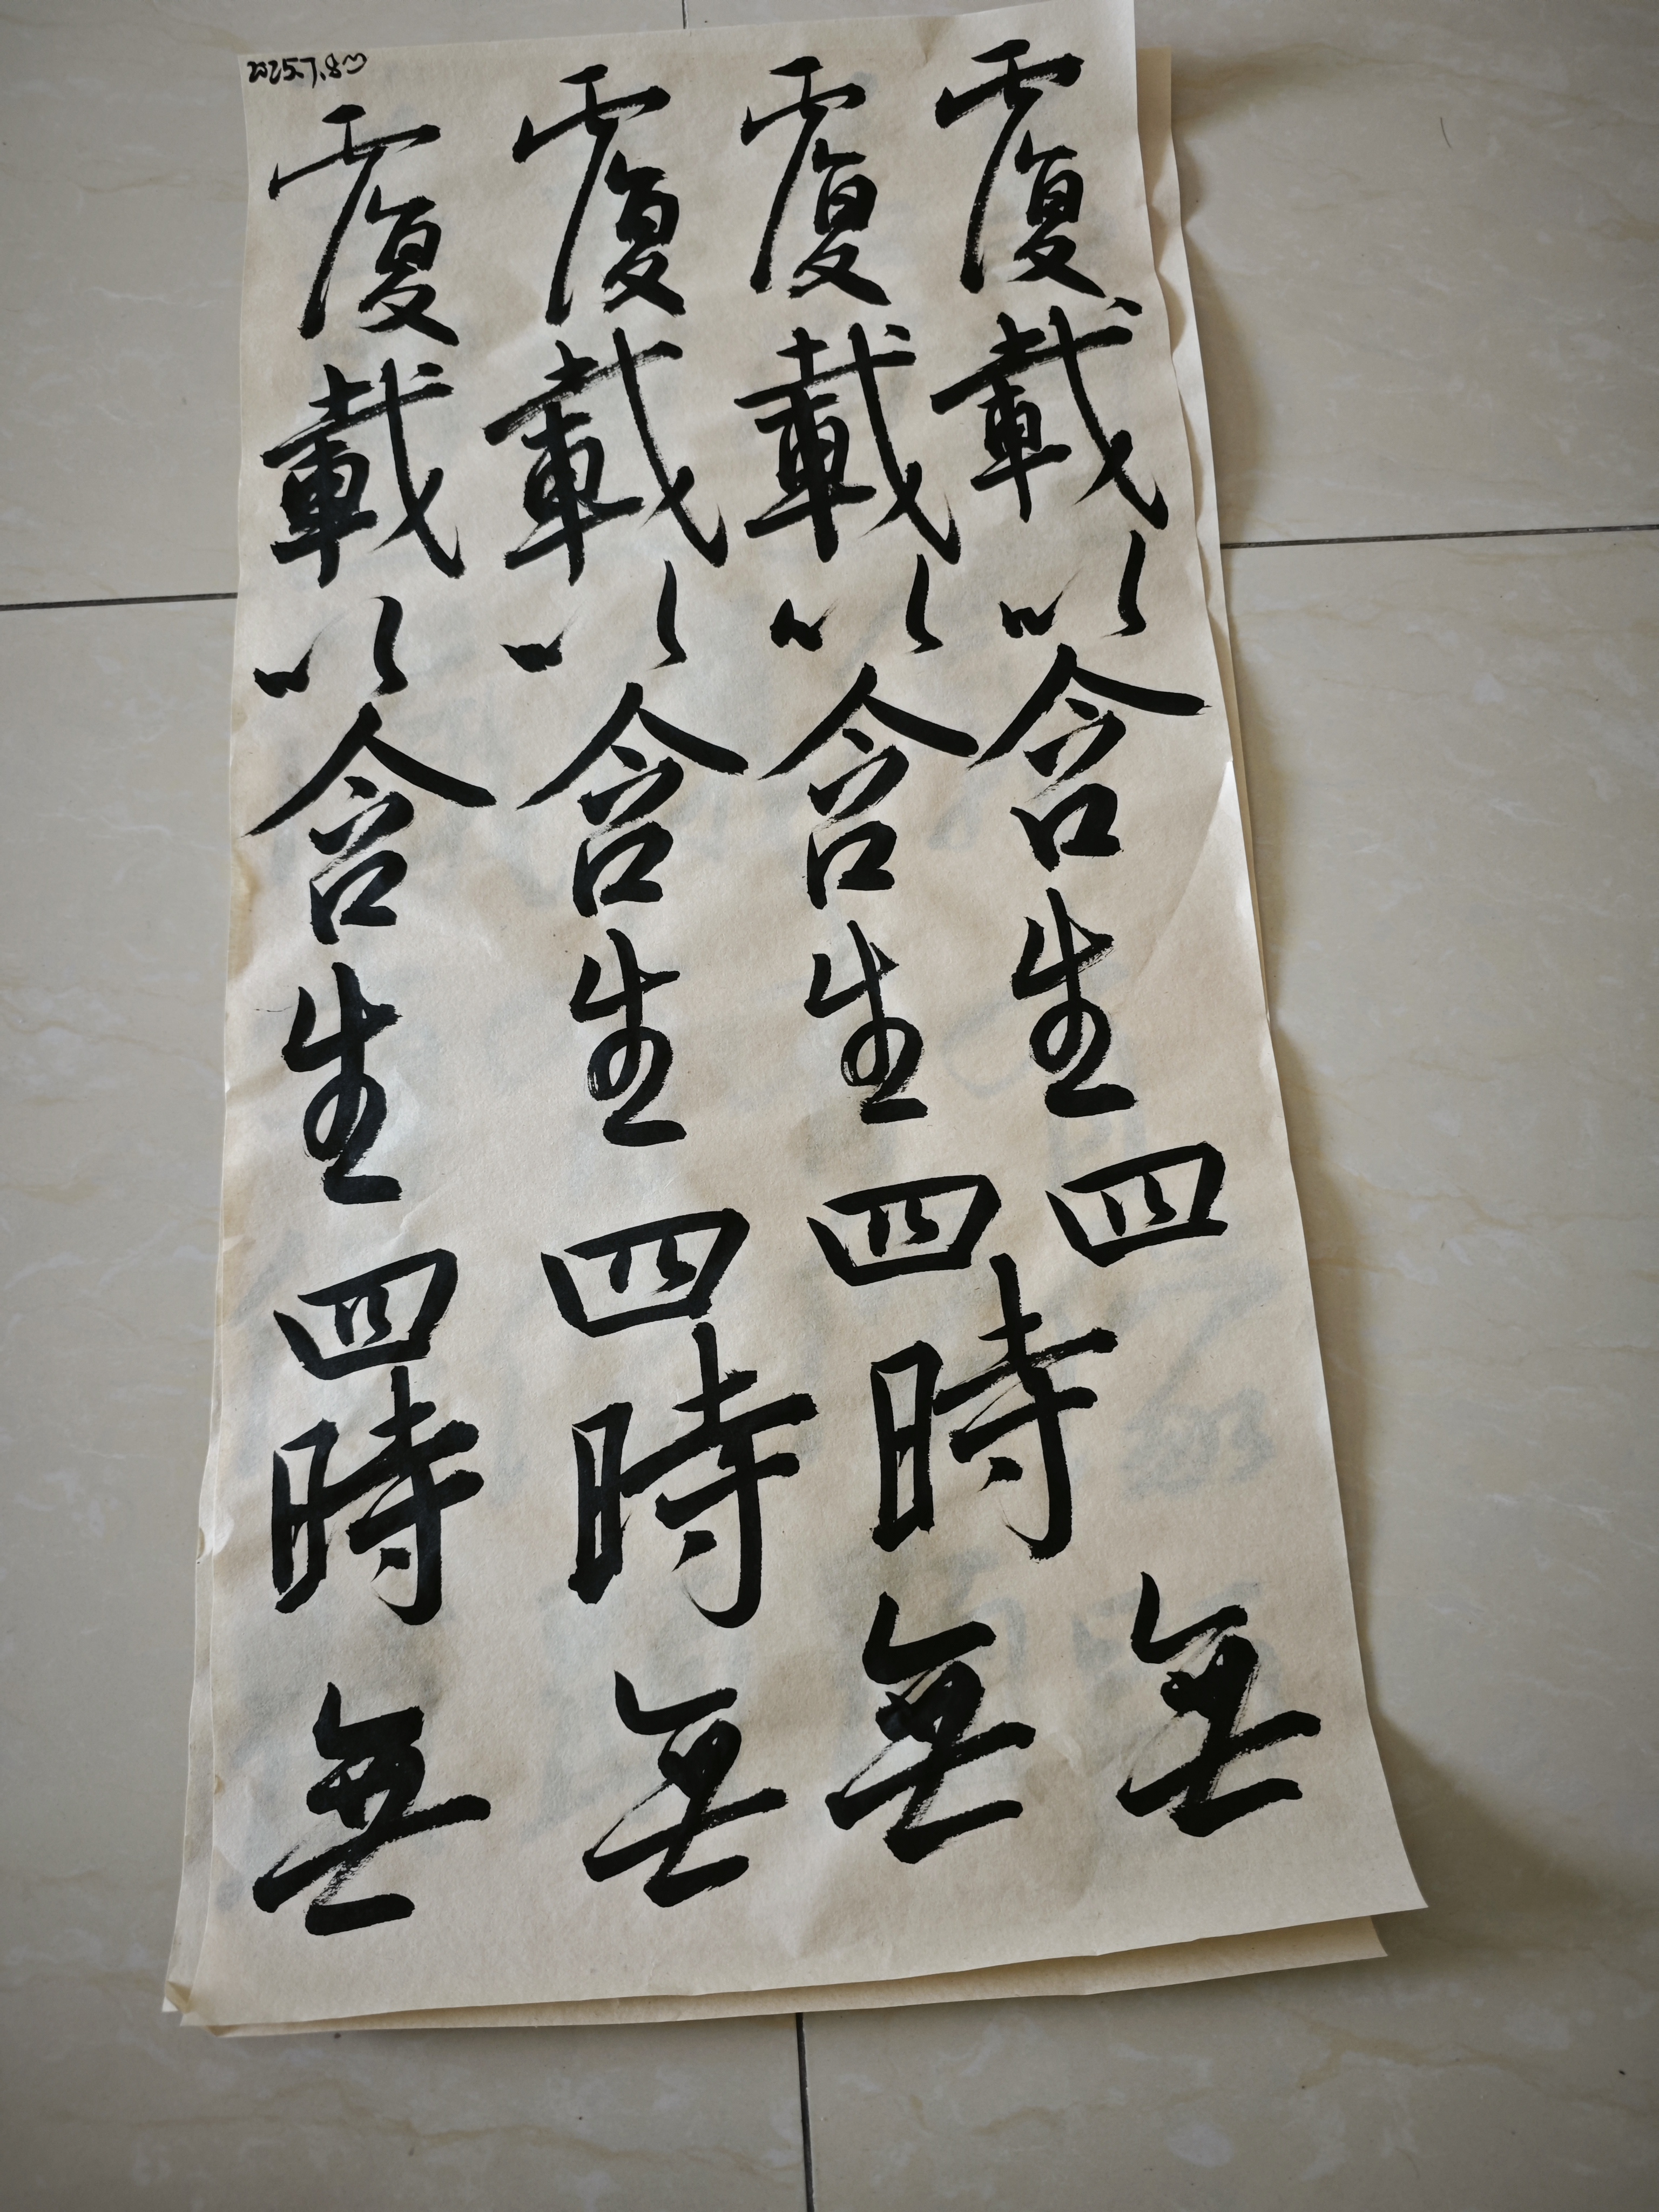 覆載以含生四無
覆載以含生四時無
覆載以含生四時無
覆載以含生四時無
2025.7.8